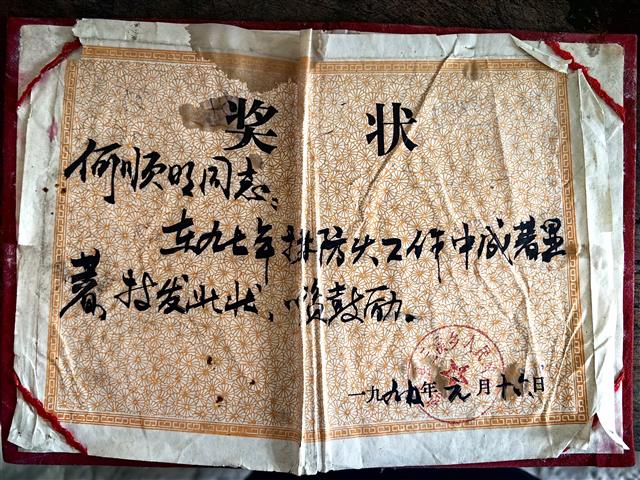 奖状
何顺明同志:
在九七年林防火工作中成绩显
著,特发此状,以资鼓励。
一九九年元月十六日
乡人民